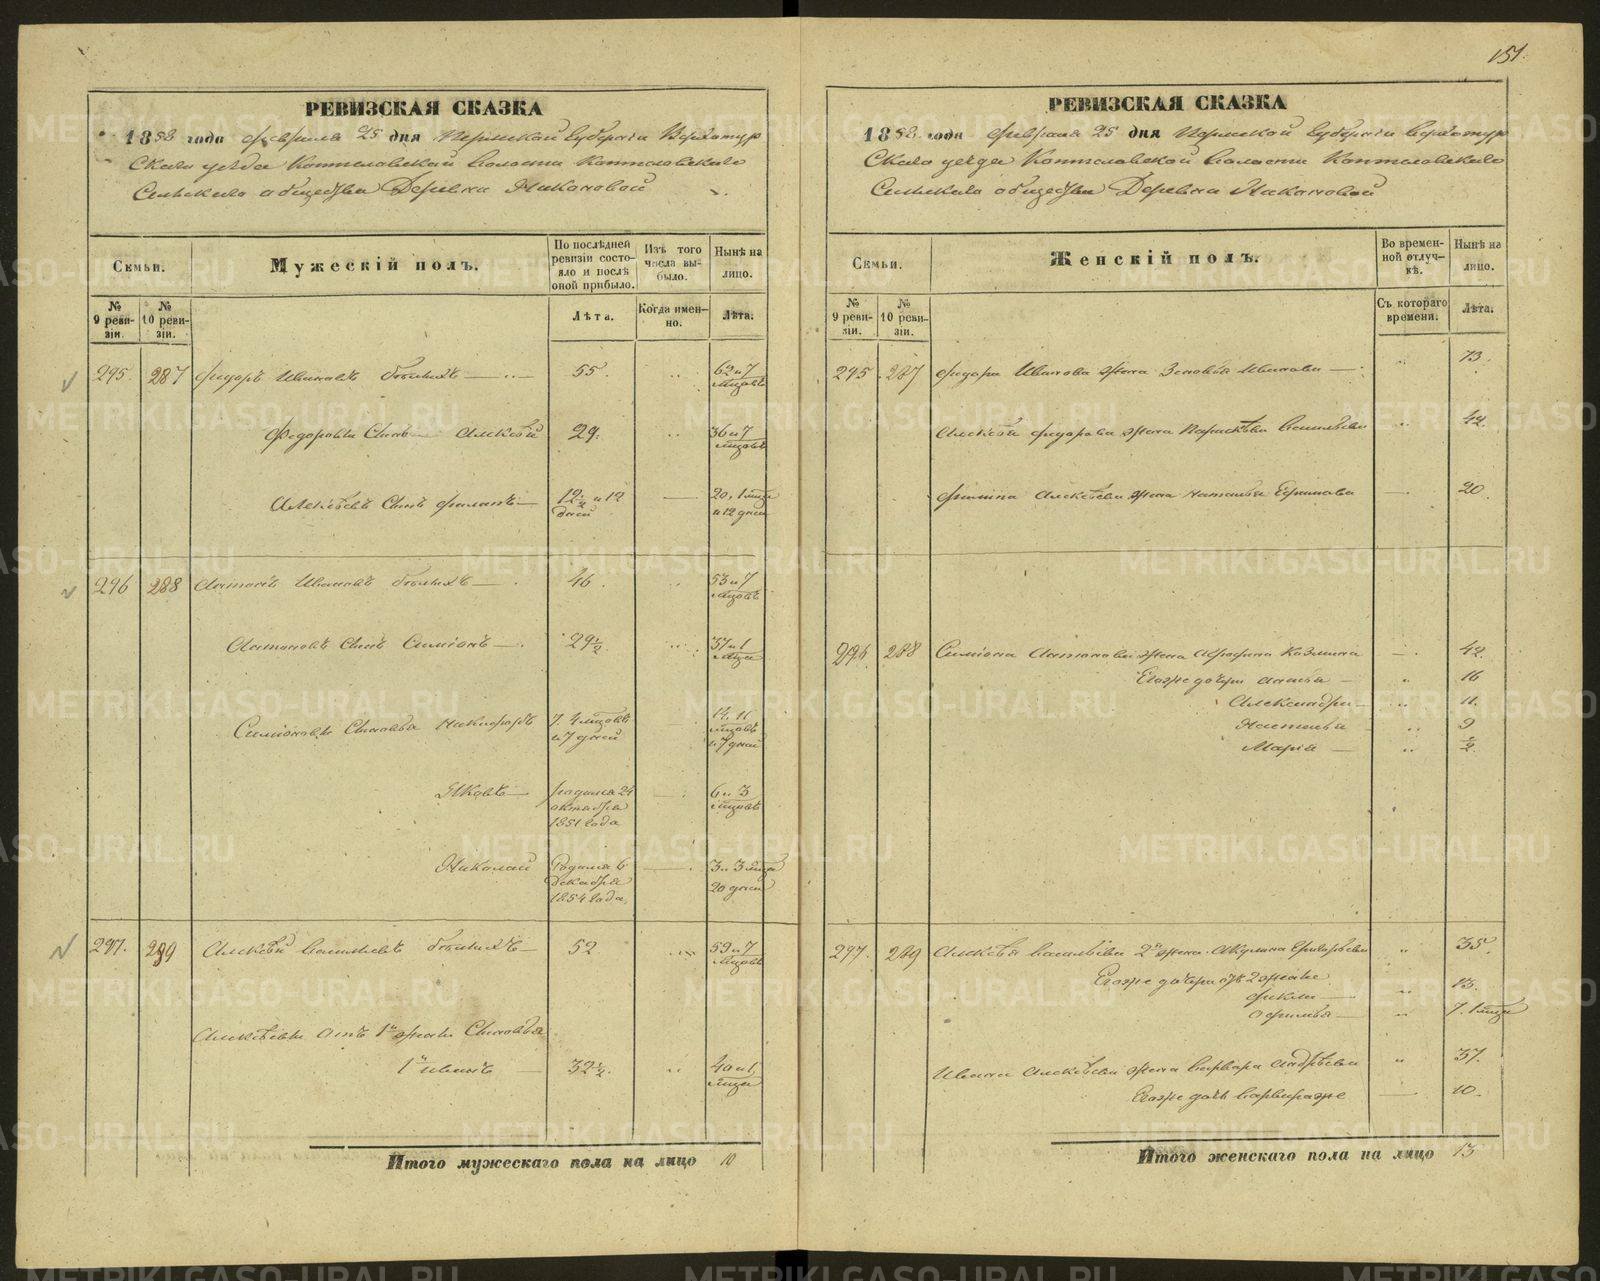 151.
РЕВИЗСКАЯ СКАЗКА
1858 года февраля 25 дня Пермской Губернiи Верхотур
Скаго уѣзда Коптеловской волости Коптеловскаго
Сельскаго общества Деревни Никоновой
Семьи.
Мужескiй полъ.
По послѣдней ревизiи состояло и послѣ оной прибыло.
Изъ того числа выбыло.
Нынѣ на лицо.
№ 9 ревизiи.
№ 10 ревизiи.
Лѣта.
Когда именно.
Лѣта.
295. 287 Федоръ Ивановъ 55. 62 и 7 мѣсяцовъ
Федоровъ Сынъ Алексѣй 29. 36 и 7 мѣсяцовъ
Алексѣевъ Сынъ Филипъ 12½ и 12 дней 20, 1 мѣсяц и 12 дней
296 288 Антонъ Ивановъ 46 53 и 7 мѣсяцовъ
Антоновъ Сынъ Симіонъ 29½ 37 и 1 мѣсяц
Симіоновы Сыновья Никифоръ 7. 4 мѣсяцовъ и 7 дней 14. 11 мѣсяцовъ и 7 дней
Яковъ родился 24 октября 1851 года 6 и 3 мѣсяцовъ
Николай Родился 6 Декабря 1854 года 3 и 3 мѣсяца 20 дней
297. 289 Алексѣй Васильевъ 52 59 и 7 мѣсяцовъ
Алексѣевы отъ 1й жены Сыновья
1й Иванъ 32½. 40 и 1 мѣсяц
Итого мужескаго пола на лицо 10
РЕВИЗСКАЯ СКАЗКА
1858 года февраля 25 дня Пермской Губернiи Верхотур
Скаго уѣзда Коптеловской волости Коптеловскаго
Сельскаго общества Деревни Никоновой
Семьи.
Женскiй полъ.
Во временной отлучкѣ.
Нынѣ на лицо.
№ 9 ревизiи.
№ 10 ревизiи.
Съ котораго времени.
Лѣта.
295 287 Федора Иванова жена Зеновья Иванова 73.
Алексѣя Федорова жена Параскѣва Васильева 42.
Филипа Алексѣева жена Наталья Ефимова 20.
296 288 Симіона Антонова жена Афросина Казмина 42.
Егоже дочери 16
Александра 11.
Настасья 9
Марія ½
297. 289 Алексѣя Васильева 2я жена Акулина Григорьева 35.
Егоже дочери отъ 2 жены
Фекла 13.
Офимья 7. 1 мѣсяц
Ивана Алексѣева жена Варвара Андрѣева 37.
Егоже дочь Варвараже 10.
Итого женскаго пола на лицо 13